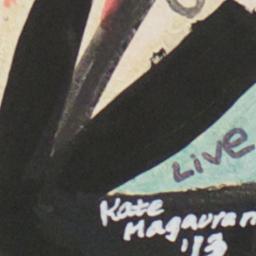 LIVE
Kate
Magauran
'13